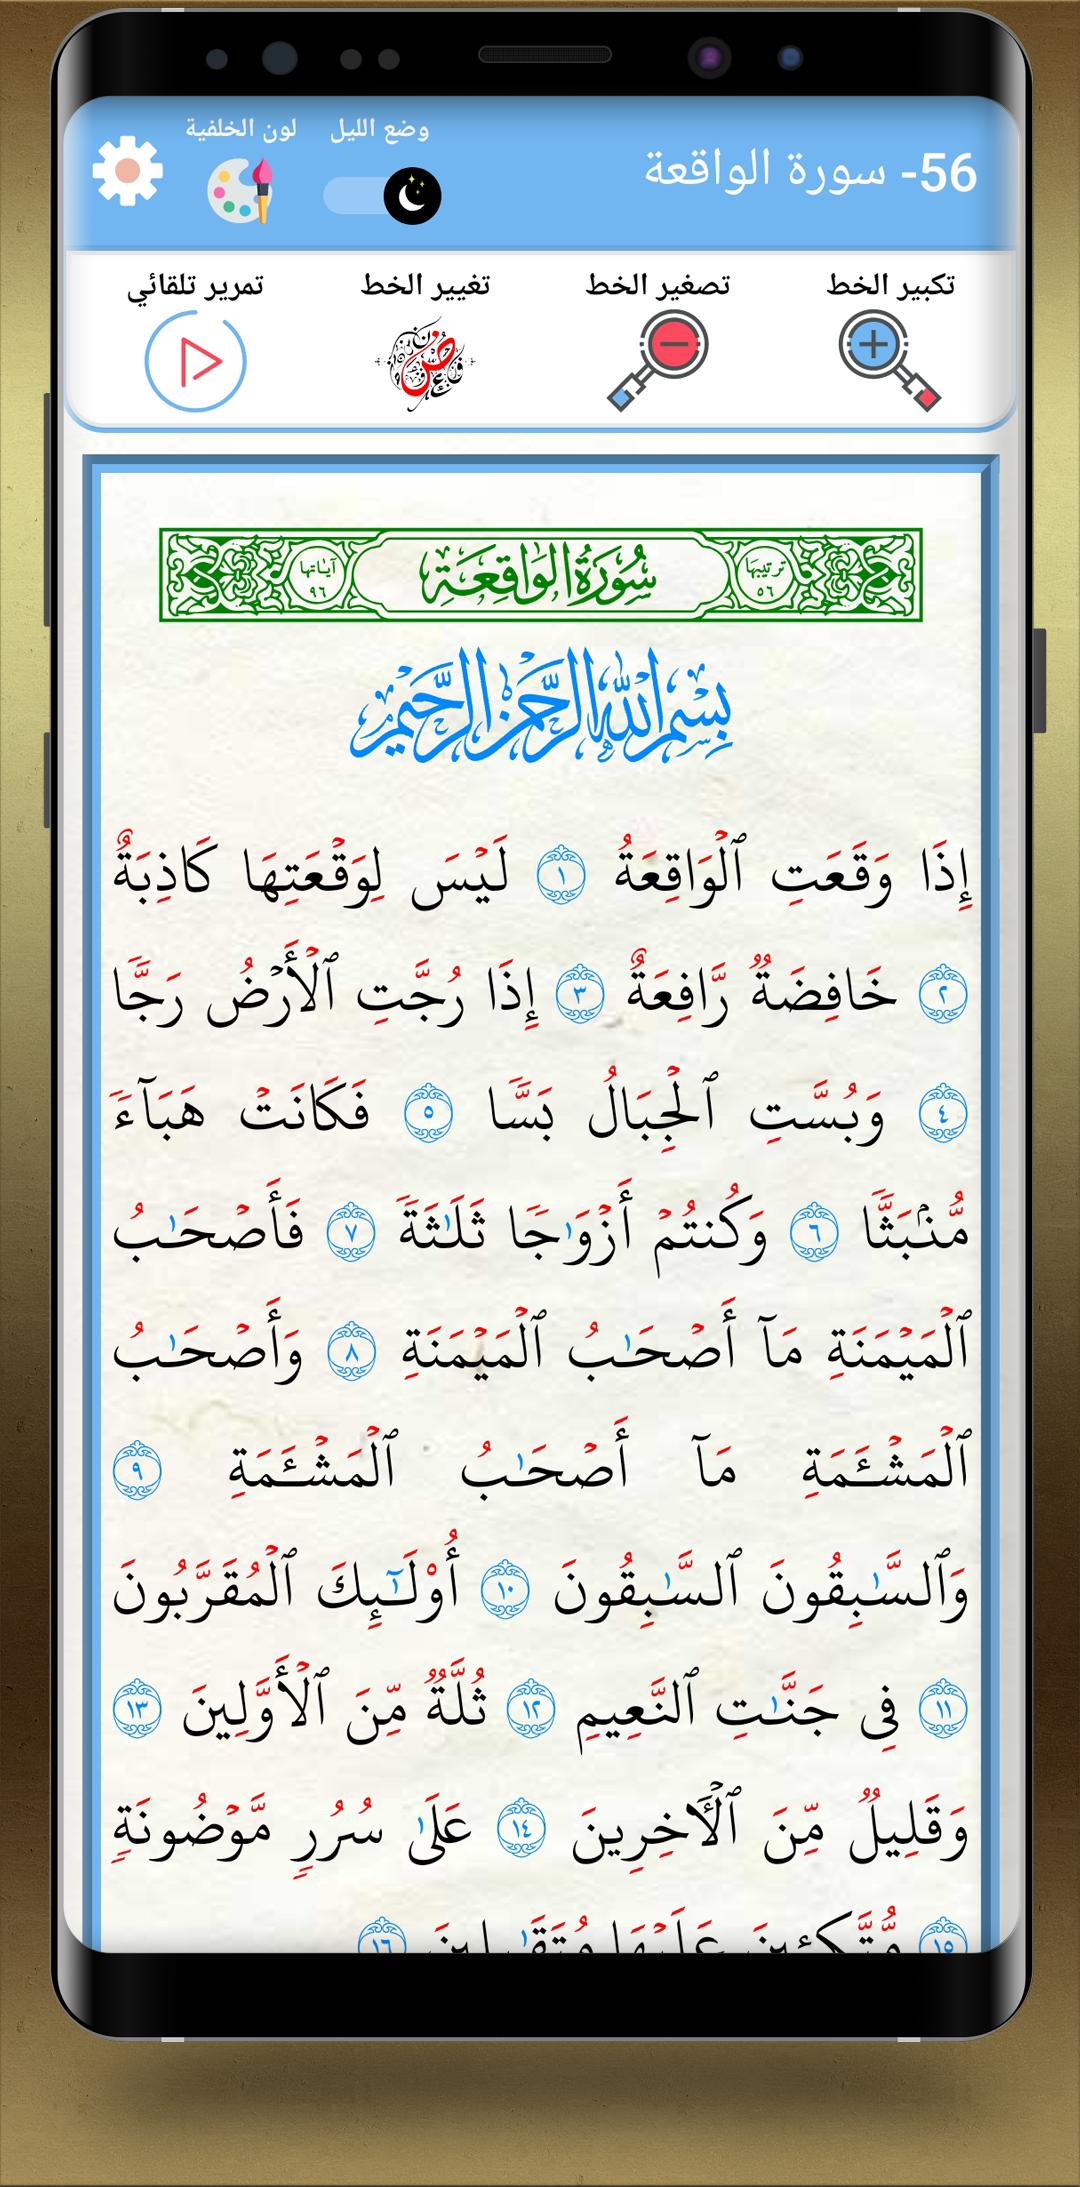 56- سورة الواقعة
وضع الليل
لون الخلفية
تكبير الخط
تصغير الخط
تغيير الخط
تمرير تلقائي
ترتيبها ٥٦
سُورَةُ الوَاقِعَةِ
آيَاتها ٩٦
بِسْمِ اللَّهِ الرَّحْمَٰنِ الرَّحِيمِ
إِذَا وَقَعَتِ ٱلْوَاقِعَةُ ١ لَيْسَ لِوَقْعَتِهَا كَاذِبَةٌ
٢ خَافِضَةٌ رَّافِعَةٌ ٣ إِذَا رُجَّتِ ٱلْأَرْضُ رَجًّا
٤ وَبُسَّتِ ٱلْجِبَالُ بَسًّا ٥ فَكَانَتْ هَبَآءً
مُّنۢبَثًّا ٦ وَكُنتُمْ أَزْوَٰجًا ثَلَٰثَةً ٧ فَأَصْحَٰبُ
ٱلْمَيْمَنَةِ مَآ أَصْحَٰبُ ٱلْمَيْمَنَةِ ٨ وَأَصْحَٰبُ
ٱلْمَشْـَٔمَةِ مَآ أَصْحَٰبُ ٱلْمَشْـَٔمَةِ ٩
وَٱلسَّٰبِقُونَ ٱلسَّٰبِقُونَ ١٠ أُو۟لَـٰٓئِكَ ٱلْمُقَرَّبُونَ
١١ فِى جَنَّٰتِ ٱلنَّعِيمِ ١٢ ثُلَّةٌ مِّنَ ٱلْأَوَّلِينَ ١٣
وَقَلِيلٌ مِّنَ ٱلْأَخِرِينَ ١٤ عَلَىٰ سُرُرٍ مَّوْضُونَةٍ
١٥ مُّتَّكِئِينَ عَلَيْهَا مُتَقَٰبِلِينَ ١٦